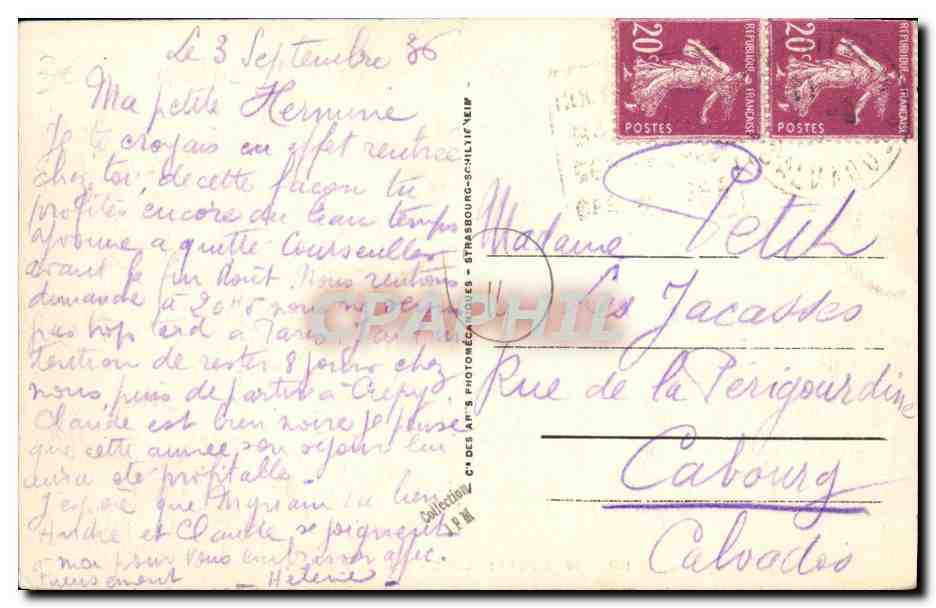 Le 3 Septembre 36
Ma petite Hermine
Je te croyais en effet rentrée
chez toi, de cette façon tu
profites encore du beau temps
Yvonne a quitté Courseulles
avant le fin Août. Nous rentrons
dimanche à 20h5 nous ne
pas trop tard à Paris. J'ai
tention de rester 8 jours chez
nous, puis de partir à Crépy
Claude est bien noire je pense
que cette année son séjour lui
aura été profitable.
J'espère que va bien
André et Claude se joignent
à moi pour vous embrasser affec-
tueusement - Hélène -
CIE DES ARTS PHOTOMÉCANIQUES - STRASBOURG-SCHILTIGHEIM -
Collection
CPAPHIL
20c
REPUBLIQUE FRANÇAISE
POSTES
20c
REPUBLIQUE FRANÇAISE
POSTES
CALVADOS
Madame Petit
Les Jacasses
Rue de la Périgourdine
Cabourg
Calvados